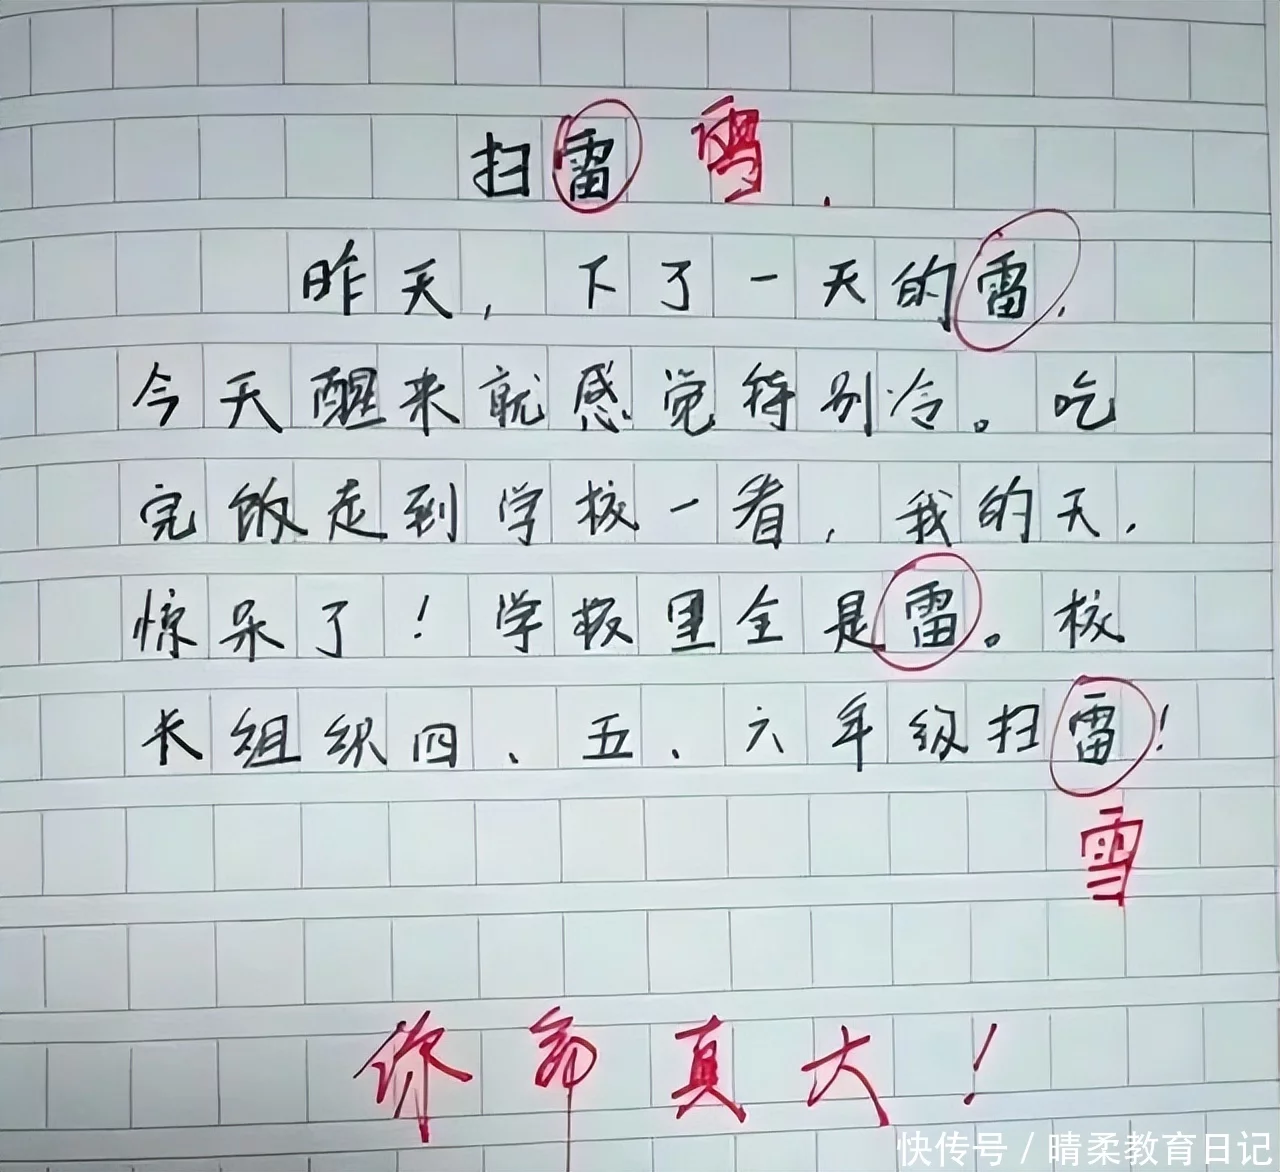 扫雷 雪.
昨天,下了一天的雷.
今天醒来就感觉特别冷。吃
完饭走到学校一看,我的天,
惊呆了!学校里全是雷。校
长组织四、五、六年级扫雷!
雪
你命真大!
快传号/晴柔教育日记